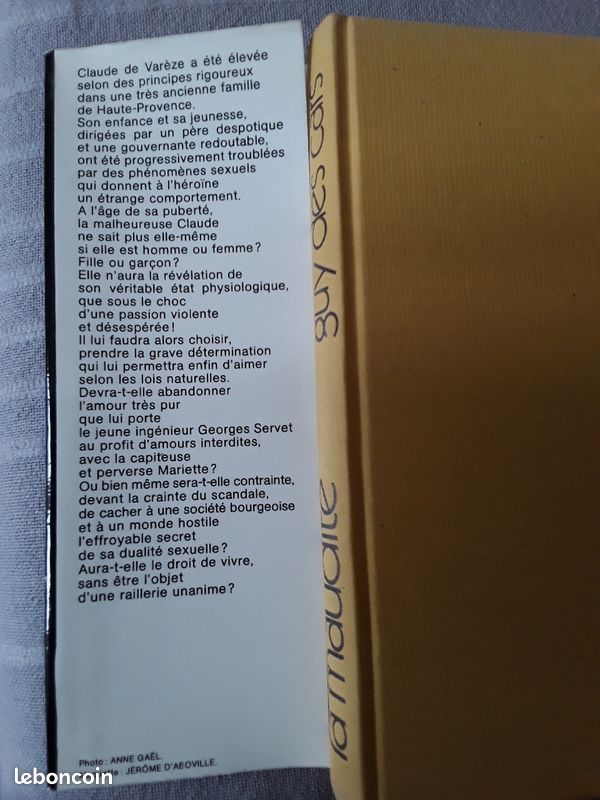 Claude de Varèze a été élevée
selon des principes rigoureux
dans une très ancienne famille
de Haute-Provence.
Son enfance et sa jeunesse,
dirigées par un père despotique
et une gouvernante redoutable,
ont été progressivement troublées
par des phénomènes sexuels
qui donnent à l'héroïne
un étrange comportement.
A l'âge de sa puberté,
la malheureuse Claude
ne sait plus elle-même
si elle est homme ou femme ?
Fille ou garçon ?
Elle n'aura la révélation de
son véritable état physiologique,
que sous le choc
d'une passion violente
et désespérée !
Il lui faudra alors choisir,
prendre la grave détermination
qui lui permettra enfin d'aimer
selon les lois naturelles.
Devra-t-elle abandonner
l'amour très pur
que lui porte
le jeune ingénieur Georges Servet
au profit d'amours interdites,
avec la capiteuse
et perverse Mariette ?
Ou bien même sera-t-elle contrainte,
devant la crainte du scandale,
de cacher à une société bourgeoise
et à un monde hostile
l'effroyable secret
de sa dualité sexuelle ?
Aura-t-elle le droit de vivre,
sans être l'objet
d'une raillerie unanime ?
Photo : ANNE GAËL.
: JÉRÔME D'ABOVILLE.
la maudite guy des cars
leboncoin